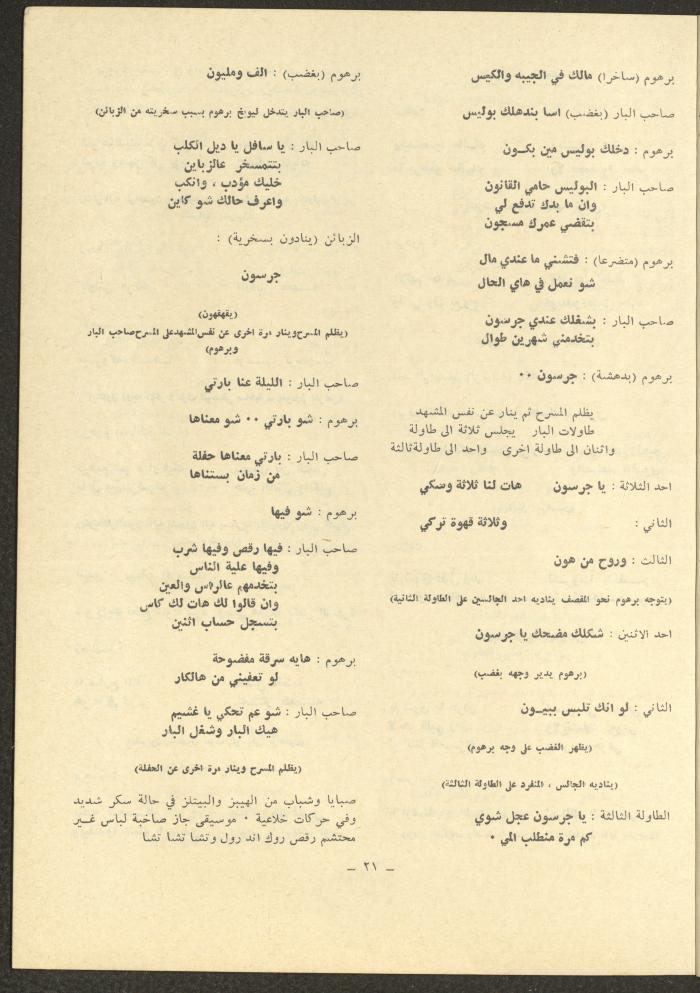 برهوم (ساخرا) مالك في الجيبه والكيس
صاحب البار (بغضب) اسا بندهلك بوليس
برهوم : دخلك بوليس مين بكــون
صاحب البار : البوليس حامي القانون
وان ما بدك تدفع لي
بتقضي عمرك مسجون
برهوم (متضرعا) : فتشني ما عندي مال
شو نعمل في هاي الحال
صاحب البار : بشغلك عندي جرسون
بتخدمني شهرين طوال
برهوم (بدهشة) : جرسون ٠٠
يظلم المسرح ثم ينار عن نفس المشهد
طاولات البار يجلس ثلاثة الى طاولة
واثنان الى طاولة اخرى واحد الى طاولة ثالثة
احد الثلاثة : يا جرسون هات لنا ثلاثة وسكي
الثاني : وثلاثة قهوة تركي
الثالث : وروح من هون
(يتوجه برهوم نحو المقصف يناديه احد الجالسين على الطاولة الثانية)
احد الاثنين : شكلك مضحك يا جرسون
(برهوم يدير وجهه بغضب)
الثاني : لو انك تلبس ببيــون
(يظهر الغضب على وجه برهوم)
(يناديه الجالس ، المنفرد على الطاولة الثالثة)
الطاولة الثالثة : يا جرسون عجل شوي
كم مرة منطلب المي ٠
برهوم (بغضب) : الف ومليون
(صاحب البار يتدخل ليوبخ برهوم بسبب سخريته من الزبائن)
صاحب البار : يا سافل يا ديل انكلب
بتتمسخر عالزباين
خليك مؤدب ، وانكب
واعرف حالك شو كاين
الزبائن (ينادون بسخرية) :
جرسون
(يقهقهون)
(يظلم المسرح وينار مرة اخرى عن نفس المشهد على المسرح صاحب البار
وبرهوم)
صاحب البار : الليلة عنا بارتي
برهوم : شو بارتي ٠٠ شو معناها
صاحب البار : بارتي معناها حفلة
من زمان بستناها
برهوم : شو فيها
صاحب البار : فيها رقص وفيها شرب
وفيها علية الناس
بتخدمهم عالراس والعين
وان قالوا لك هات لك كاس
بتسجل حساب اثنين
برهوم : هايه سرقة مفضوحة
لو تعفيني من هالكار
صاحب البار : شو عم تحكي يا غشيم
هيك البار وشغل البار
(يظلم المسرح وينار مرة اخرى عن الحفلة)
صبايا وشباب من الهيبز والبيتلز في حالة سكر شديد
وفي حركات خلاعية ٠ موسيقى جاز صاخبة لباس غــير
محتشم رقص روك اند رول وتشا تشا تشا
– ٢١ –